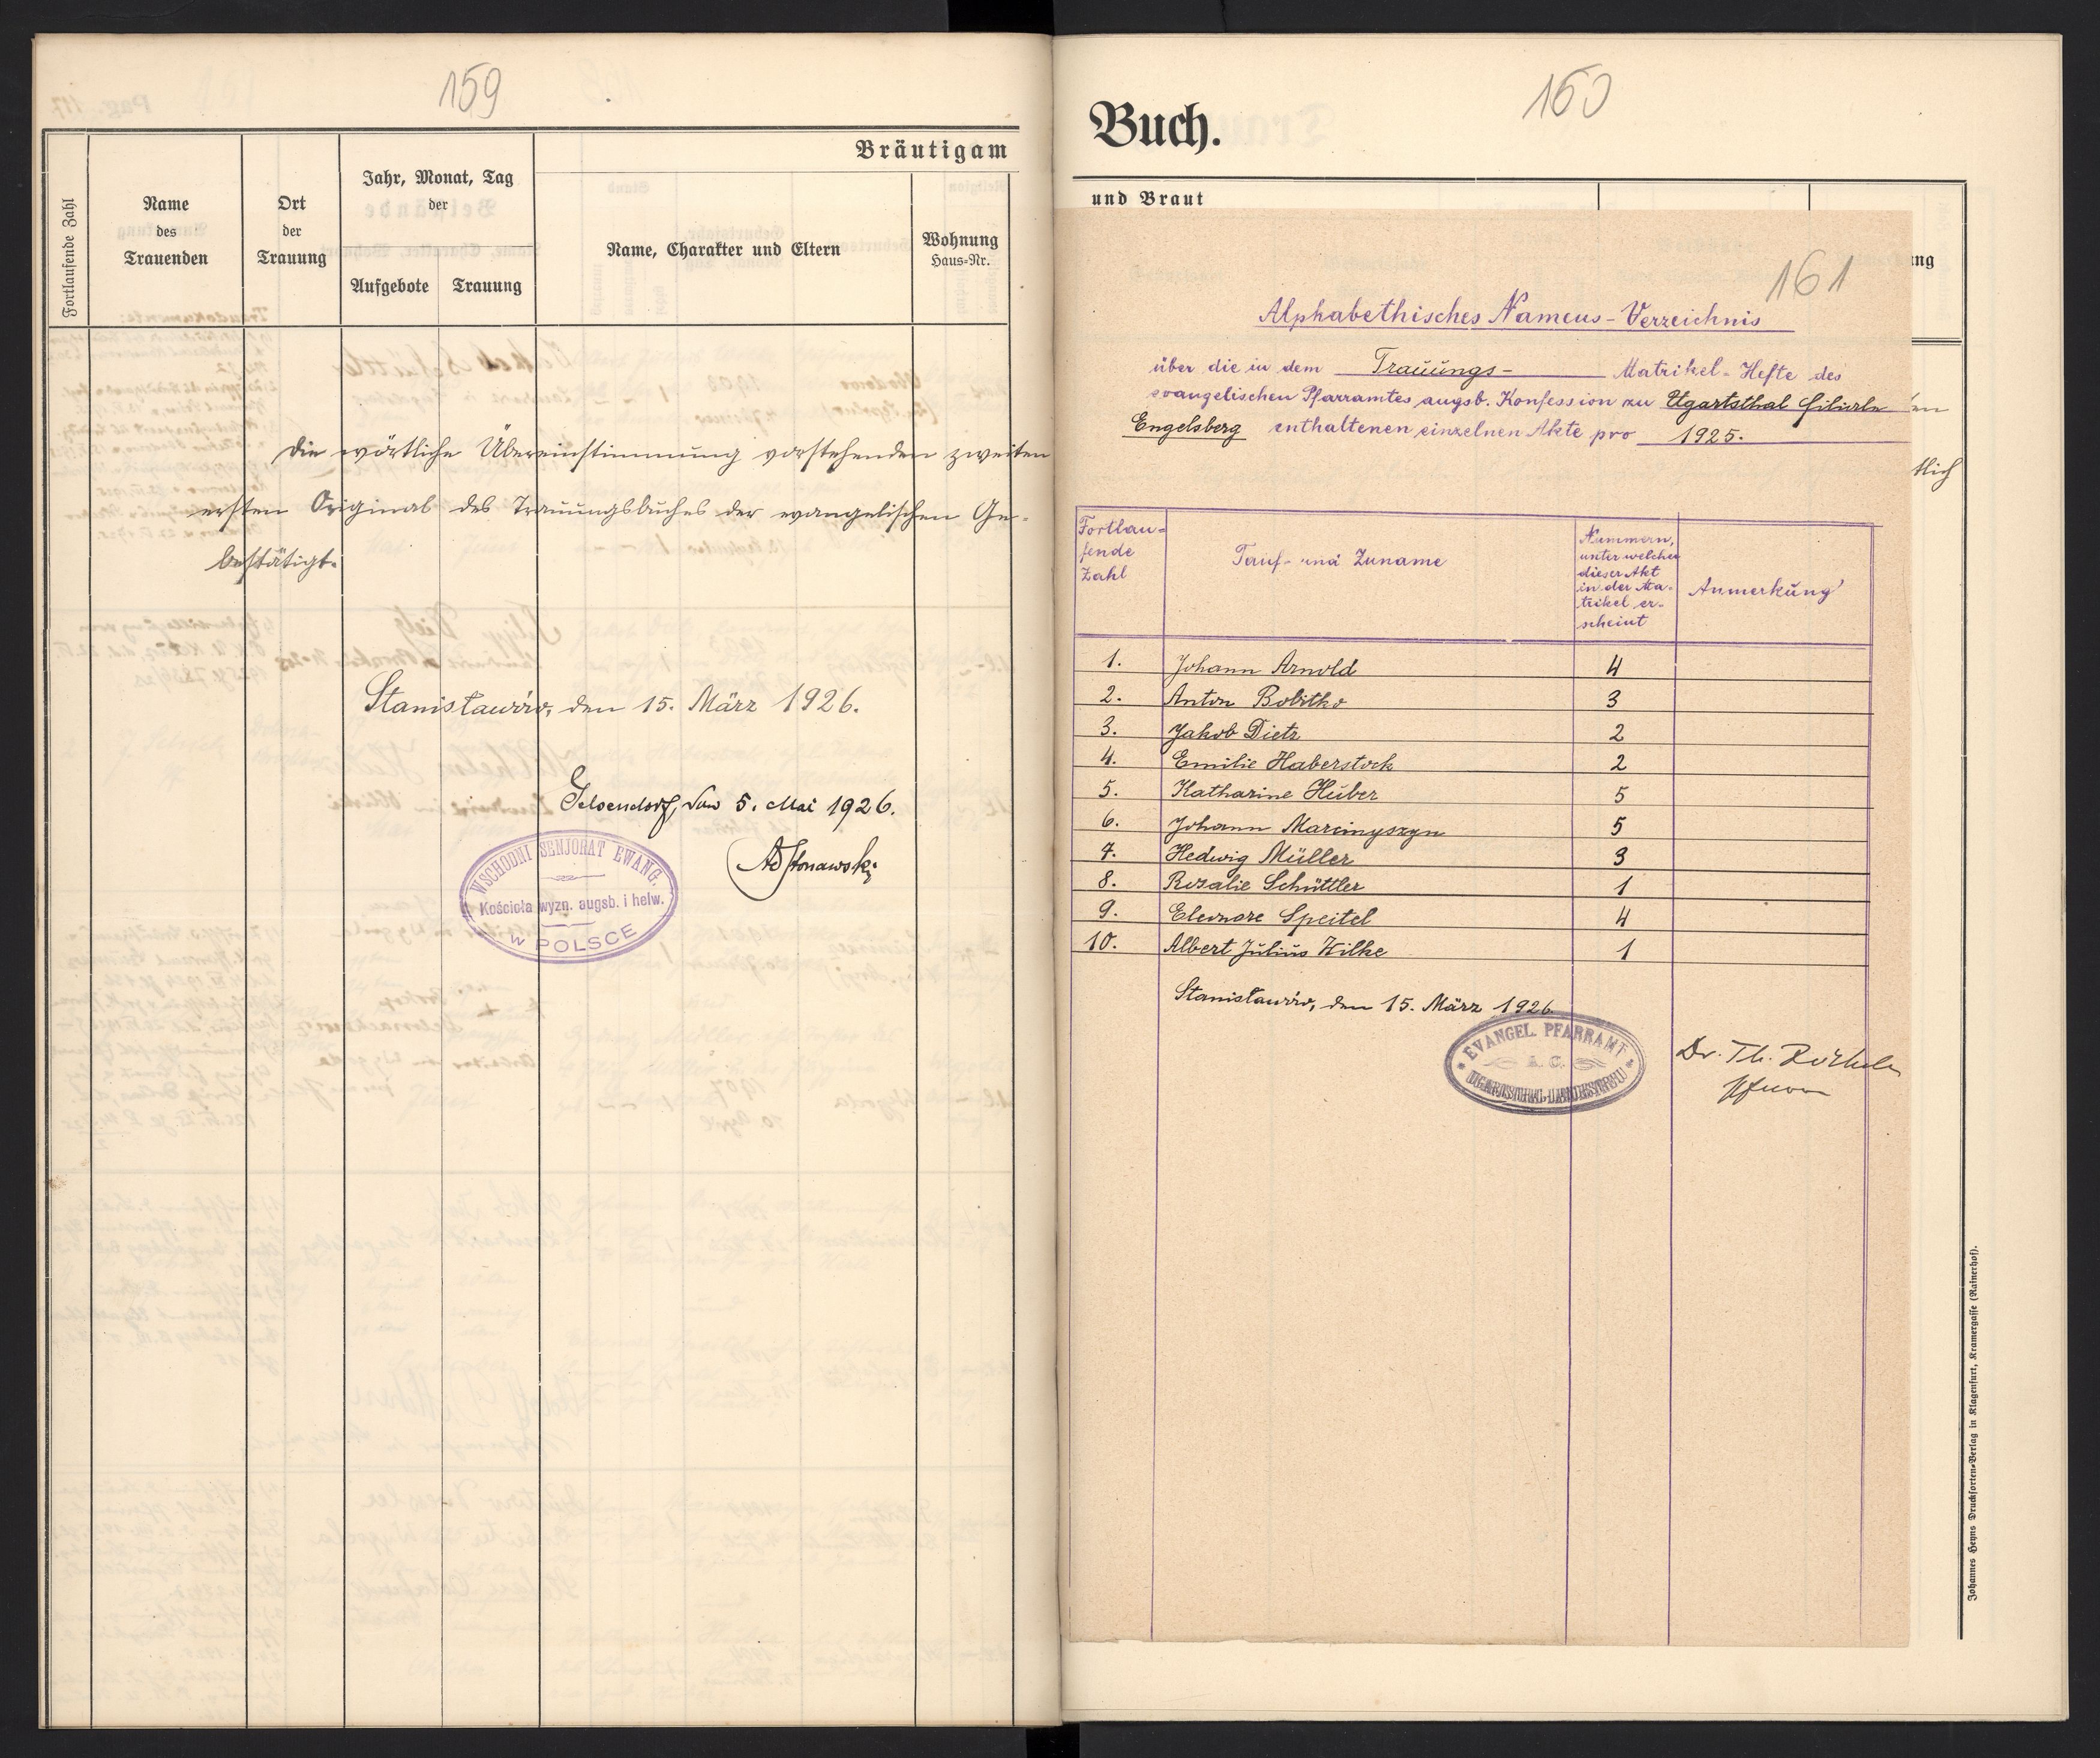 159
Bräutigam
Fortlaufende Zahl
Name
des
Trauenden
Ort
der
Trauung
Jahr, Monat, Tag
der
Aufgebote
Trauung
Name, Charakter und Eltern
Wohnung
Haus-Nr.
Die wörtliche Übereinstimmung vorstehenden zweiten
ersten Original des Trauungsbuches der evangelischen Ge-
bestätigt.
Stanisławów, den 15. März 1926.
Gelsendorf, den 5. Mai 1926.
WSCHODNI SENJORAT EWANG.
Kościoła wyzn. augsb. i helw.
w POLSCE
160
Buch.
und Braut
ng
en
tlich
161
Alphabethisches Namens-Verzeichnis
über die in dem Trauungs- Matrikel-Hefte des
evangelischen Pfarramtes augsb. Konfession zu Ugartsthal Filiale
Engelsberg enthaltenen einzelnen Akte pro 1925.
Fortlau-
fende
Zahl
Tauf- und Zuname
Nummern,
unter welchen
dieser Akt
in der Ma-
trikel er-
scheint
Anmerkung
1. Johann Arnold 4
2. Anton Bolitho 3
3. Jakob Dietz 2
4. Emilie Haberstock 2
5. Katharine Huber 5
6. Johann Marcinyszyn 5
7. Hedwig Müller 3
8. Rosalie Schüttler 1
9. Eleonore Speitel 4
10. Albert Julius Wilke 1
Stanisławów, den 15. März 1926.
EVANGEL. PFARRAMT
A. C.
Dr. Th. Zöckler
Pfarrer
Johannes Heyns Drucksorten-Verlag in Klagenfurt, Kramergasse (Rainerhof).